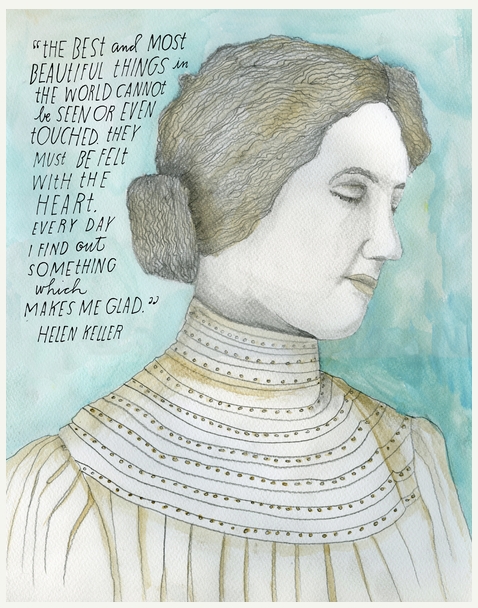 "THE BEST and MOST
BEAUTIFUL THINGS in
THE WORLD CANNOT
be SEEN OR EVEN
TOUCHED. THEY
MUST BE FELT
WITH THE
HEART.
EVERY DAY
I FIND out
SOMETHING
which
MAKES ME GLAD."
HELEN KELLER